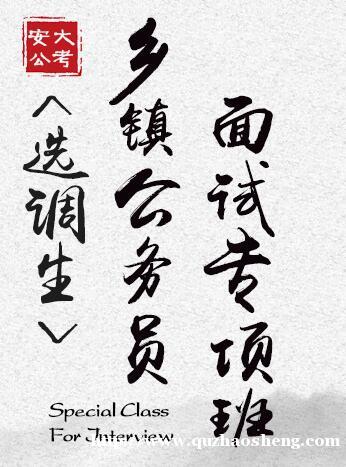 安大
公考
乡镇公务员
面试专项班
<选调生>
Special Class
For Interview
www.quzhaosheng.com